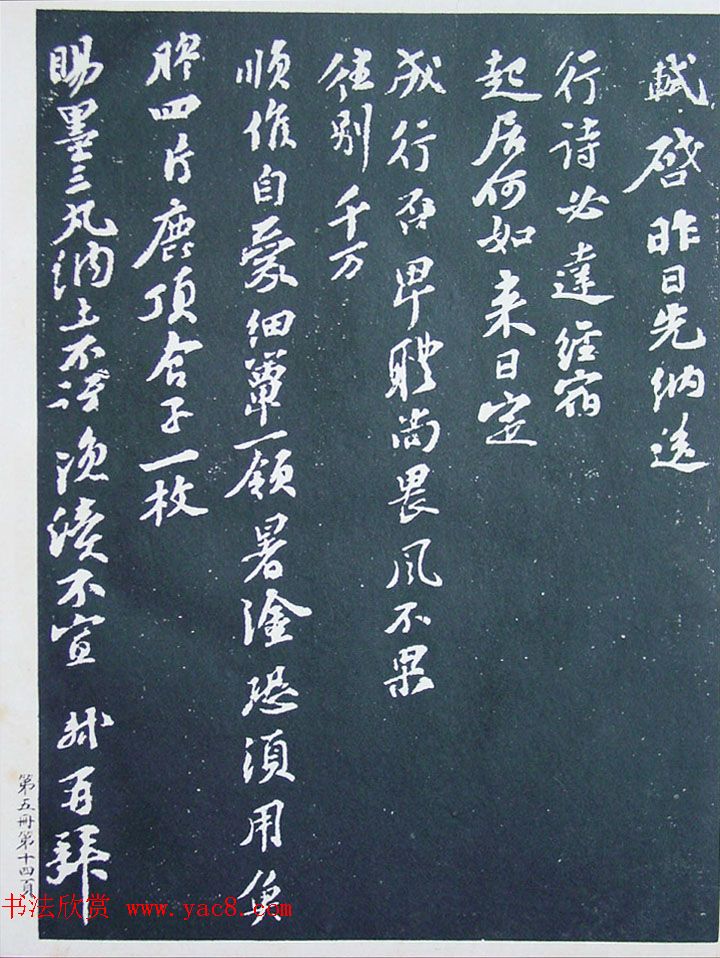 軾啓昨日先納送
行詩必達經宿
起居何如来日定
成行否卑體尚畏風不果
往别千万
順候自愛細簟一領暑塗恐須用魚
四片鹿頂合子一枚
賜墨三丸納上不訝浼瀆不宣 軾再拜
第五冊第十四頁
书法欣赏 www.yac8.com